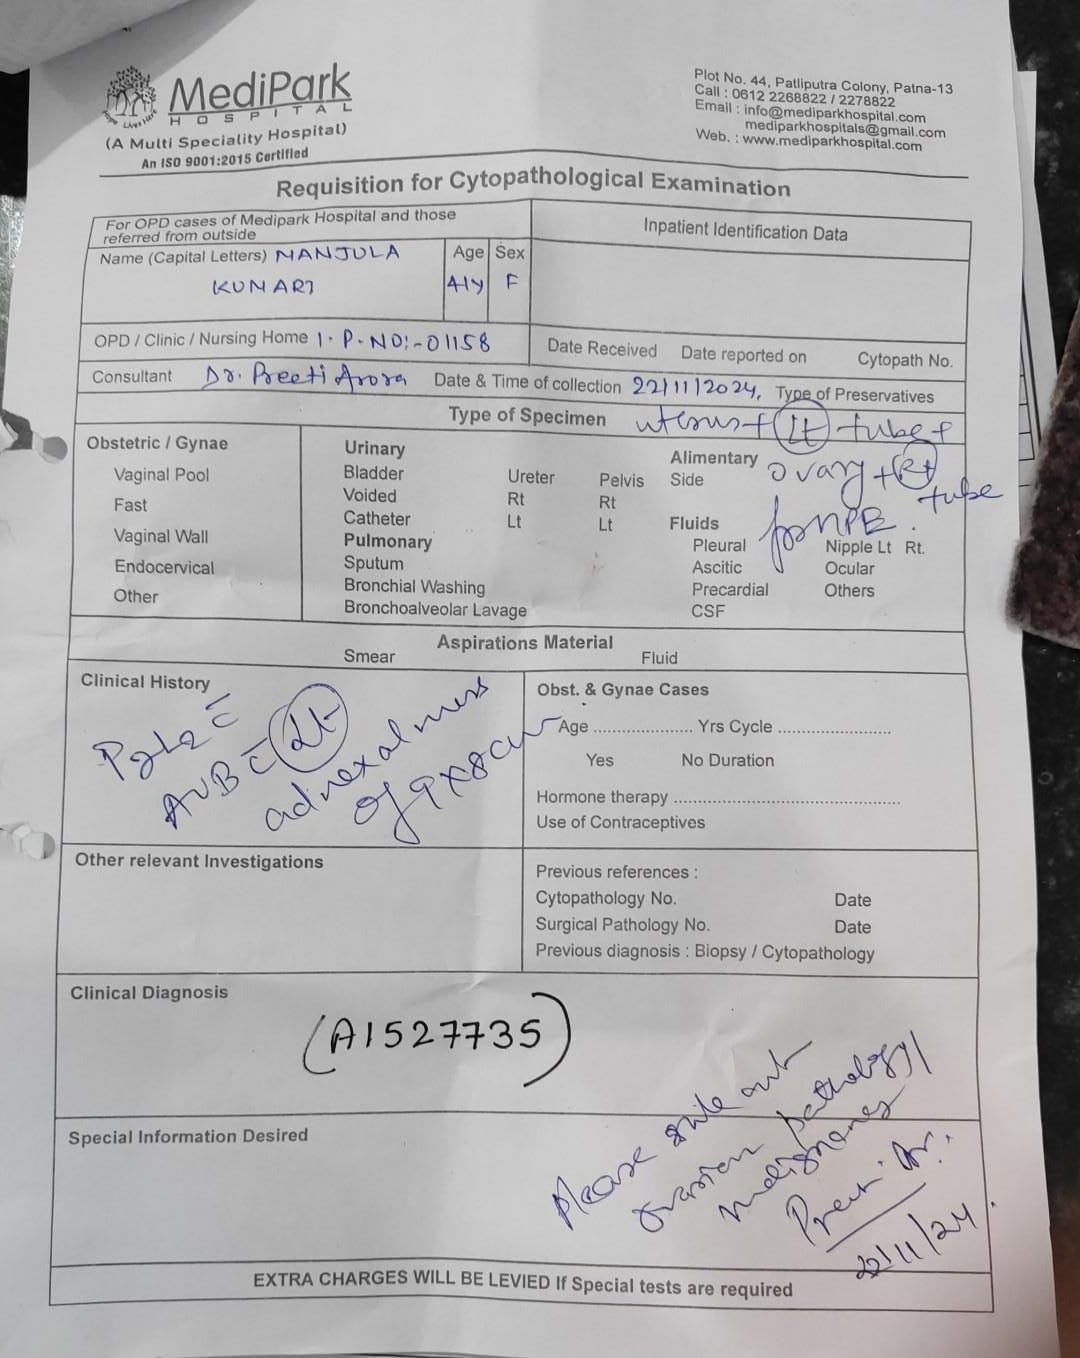 MediPark
HOSPITAL
(A Multi Speciality Hospital)
An ISO 9001:2015 Certified
Plot No. 44, Patliputra Colony, Patna-13
Call : 0612 2268822 / 2278822
Email : info@mediparkhospital.com
mediparkhospitals@gmail.com
Web. : www.mediparkhospital.com
Requisition for Cytopathological Examination
For OPD cases of Medipark Hospital and those
referred from outside
Inpatient Identification Data
Name (Capital Letters) MANJULA
KUMARI
Age Sex
41y F
OPD / Clinic / Nursing Home I.P.NO:-01158
Date Received Date reported on Cytopath No.
Consultant Dr. Preeti Arora Date & Time of collection 22/11/2024, Type of Preservatives
Type of Specimen uterus + Lt tube +
ovary + Rt
tube
for HPE.
Obstetric / Gynae
Vaginal Pool
Fast
Vaginal Wall
Endocervical
Other
Urinary
Bladder Ureter Pelvis
Voided Rt Rt
Catheter Lt Lt
Pulmonary
Sputum
Bronchial Washing
Bronchoalveolar Lavage
Alimentary
Side
Fluids
Pleural Nipple Lt Rt.
Ascitic Ocular
Precardial Others
CSF
Aspirations Material
Smear Fluid
Clinical History
P2L2 c̄
AUB c̄ Lt
adnexal mass
of 9x8cm
Obst. & Gynae Cases
Age .................... Yrs Cycle .......................
Yes No Duration
Hormone therapy ..............................................
Use of Contraceptives
Other relevant Investigations
Previous references :
Cytopathology No. Date
Surgical Pathology No. Date
Previous diagnosis : Biopsy / Cytopathology
Clinical Diagnosis
(A1527735)
Special Information Desired
Please rule out
ovarian pathology/
malignancy
Preeti Ar.
22/11/24.
EXTRA CHARGES WILL BE LEVIED If Special tests are required